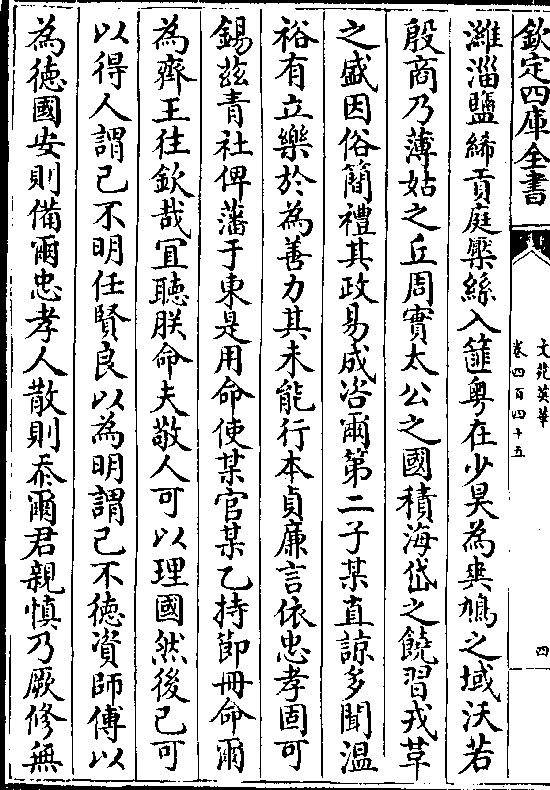 欽定四庫全書
文苑英華
卷四百四十五
四
濰淄鹽絺貢庭檿絲入篚粤在少昊為爽鳩之域沃若
殷商乃薄姑之丘周實太公之國積海岱之饒習戎草
之盛因俗簡禮其政易成咨爾第二子某直諒多聞溫
裕有立樂於為善力其未能行本貞廉言依忠孝固可
錫茲青社俾藩于東是用命使某官某乙持節冊命爾
為齊王往欽哉宜聽朕命夫敬人可以理國然後已可
以得人謂已不明任賢良以為明謂已不德資師傅以
為德國安則備爾忠孝人散則忝爾君親慎乃厥修無